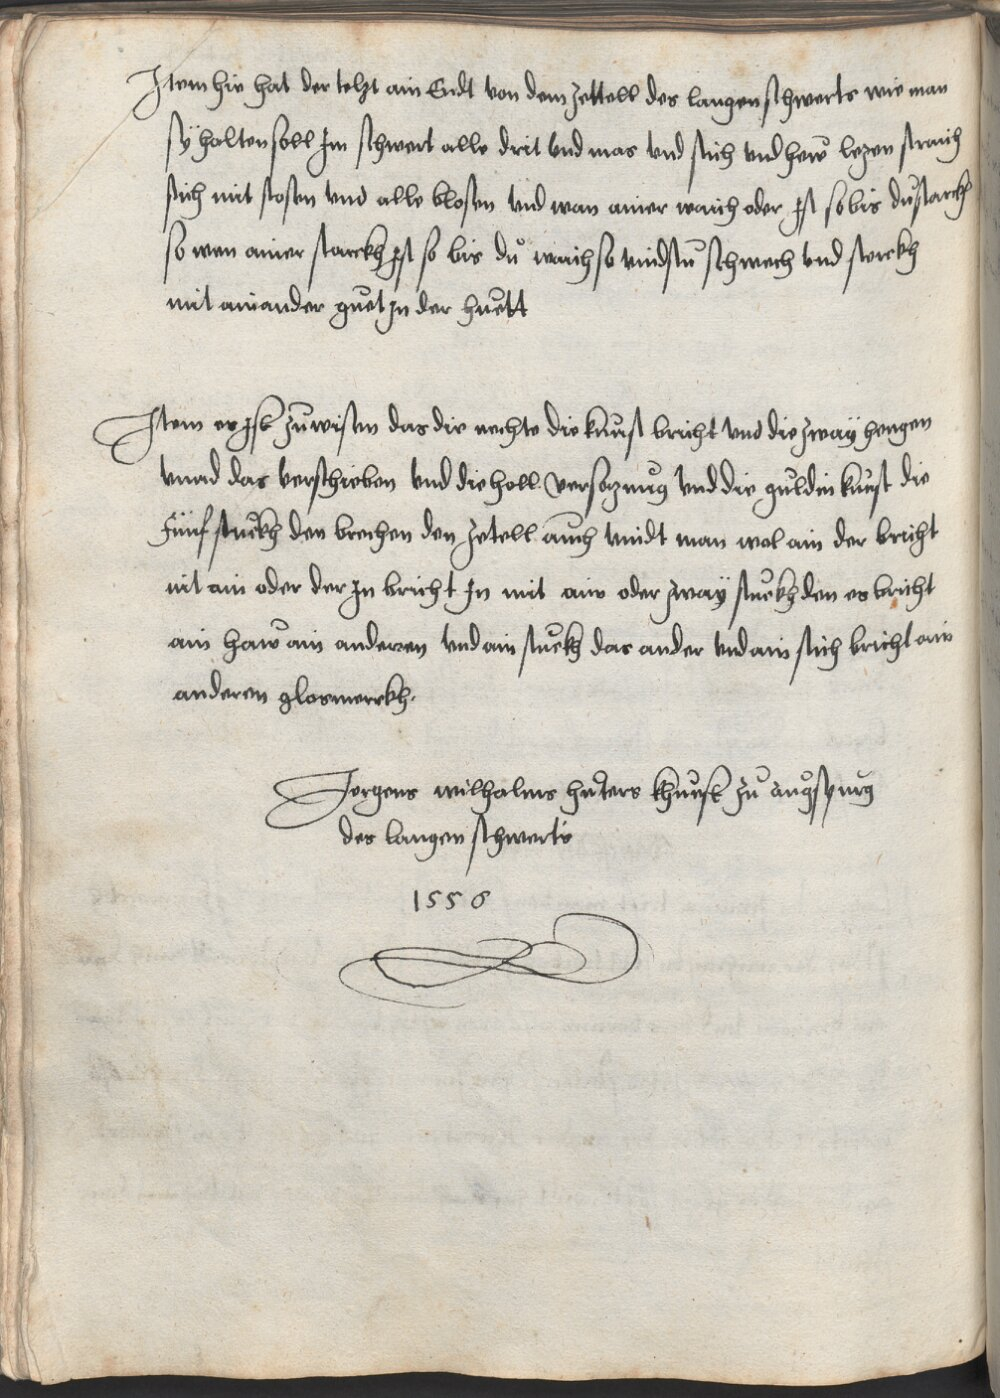 Item hie hat der telzt ain Endt von dem zettell des langen schwerts wie man
sÿ halten soll Im schwert alle drit vnd mas vnd stich vnd hew lezen straich
stich mit stosen vnd alle blosen vnd wan ainer waich oder Ist so bis dŭ starckh
so wen ainer starckh Ist so bis dŭ waich so vindstŭ schwech vnd sterckh
mit ainander guet In der huett
Item es Ist zŭ wisen das die rechte die kunst bricht vnd die zwaÿ hengen
vnnd das verschieben vnd die holl versezung vnd die guldin kunst die
fünf stuckh den brechen den zetell auch vindt man wol ain der bricht
nit ain oder der In bricht In mit ain oder zwaÿ stuckh den es bricht
ain haw ain anderen vnd ain stuckh das ander vnd ain stich bricht ain
anderen glosmerckh.
Jorgens wilhalms huters khunst zŭ augspurg
des langen schwerts
1556